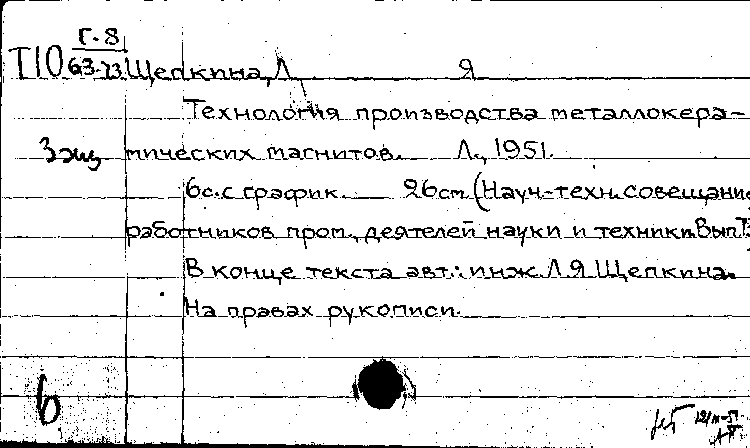 Г.8
Т10 63-73 Щепкина, Л Я
Технология производства металлокера-
3 экз мических магнитов. Л., 1951.
6 с. с график. 26 см (Науч-техн. совещание
работников пром., деятелей науки и техники. Вып.
В конце текста авт.: инж. Л Я Щепкина.
На правах рукописи.
6